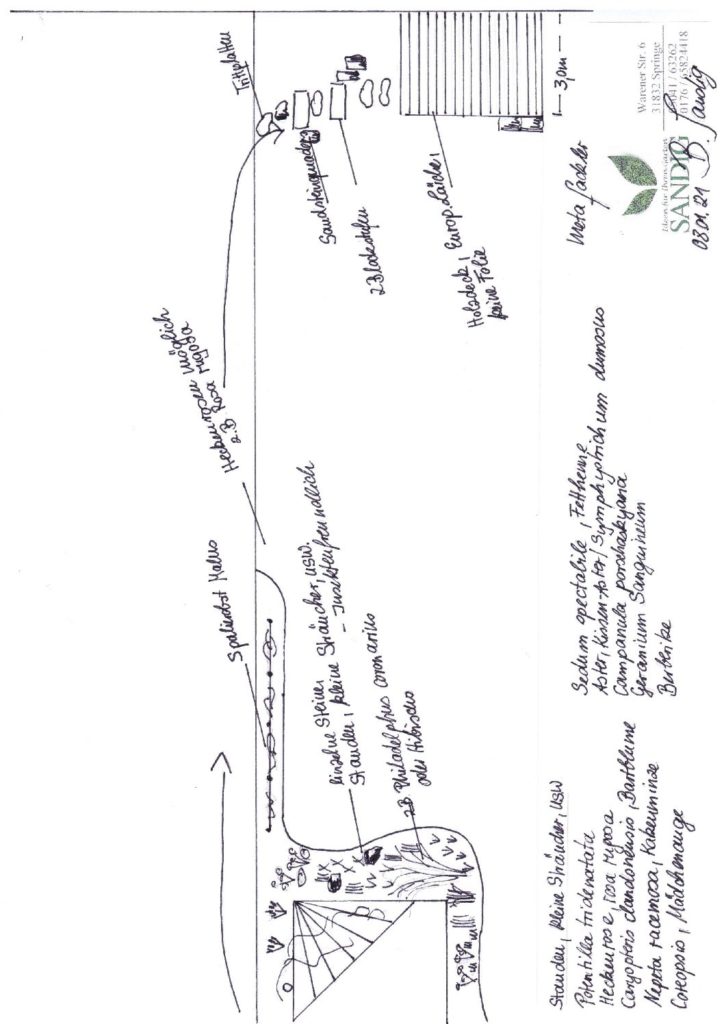 Trittplatten
Sandsteinquader
2 Blockstufen
Holzdeck, Europ. Lärche,
keine Folie
3,0m
Heckenrosen möglich
z.B Rosa rugosa
Spalierobst Malus
einzelne Steine
Stauden, kleine Sträucher, usw.
- Insektenfreundlich
z.B Philadelphus coronarius
oder Hibiscus
Stauden, kleine Sträucher, usw
Potentilla tridentata
Heckenrose, rosa rugosa
Caryopteris clandonensis, Bartblume
Nepeta racemosa, Katzenminze
Coreopsis, Mädchenauge
Sedum spectabile, Fetthenne
Aster, Kissen-Aster/Symphyotrichum dumosus
Campanula porschaskyana
Geranium Sanguineum
Berberitze
Meta Fackler
Ideen für Ihren Garten
SANDIG
Warener Str. 6
31832 Springe
041 / 63262
0176 / 65824418
03.01.21 B. Sandig